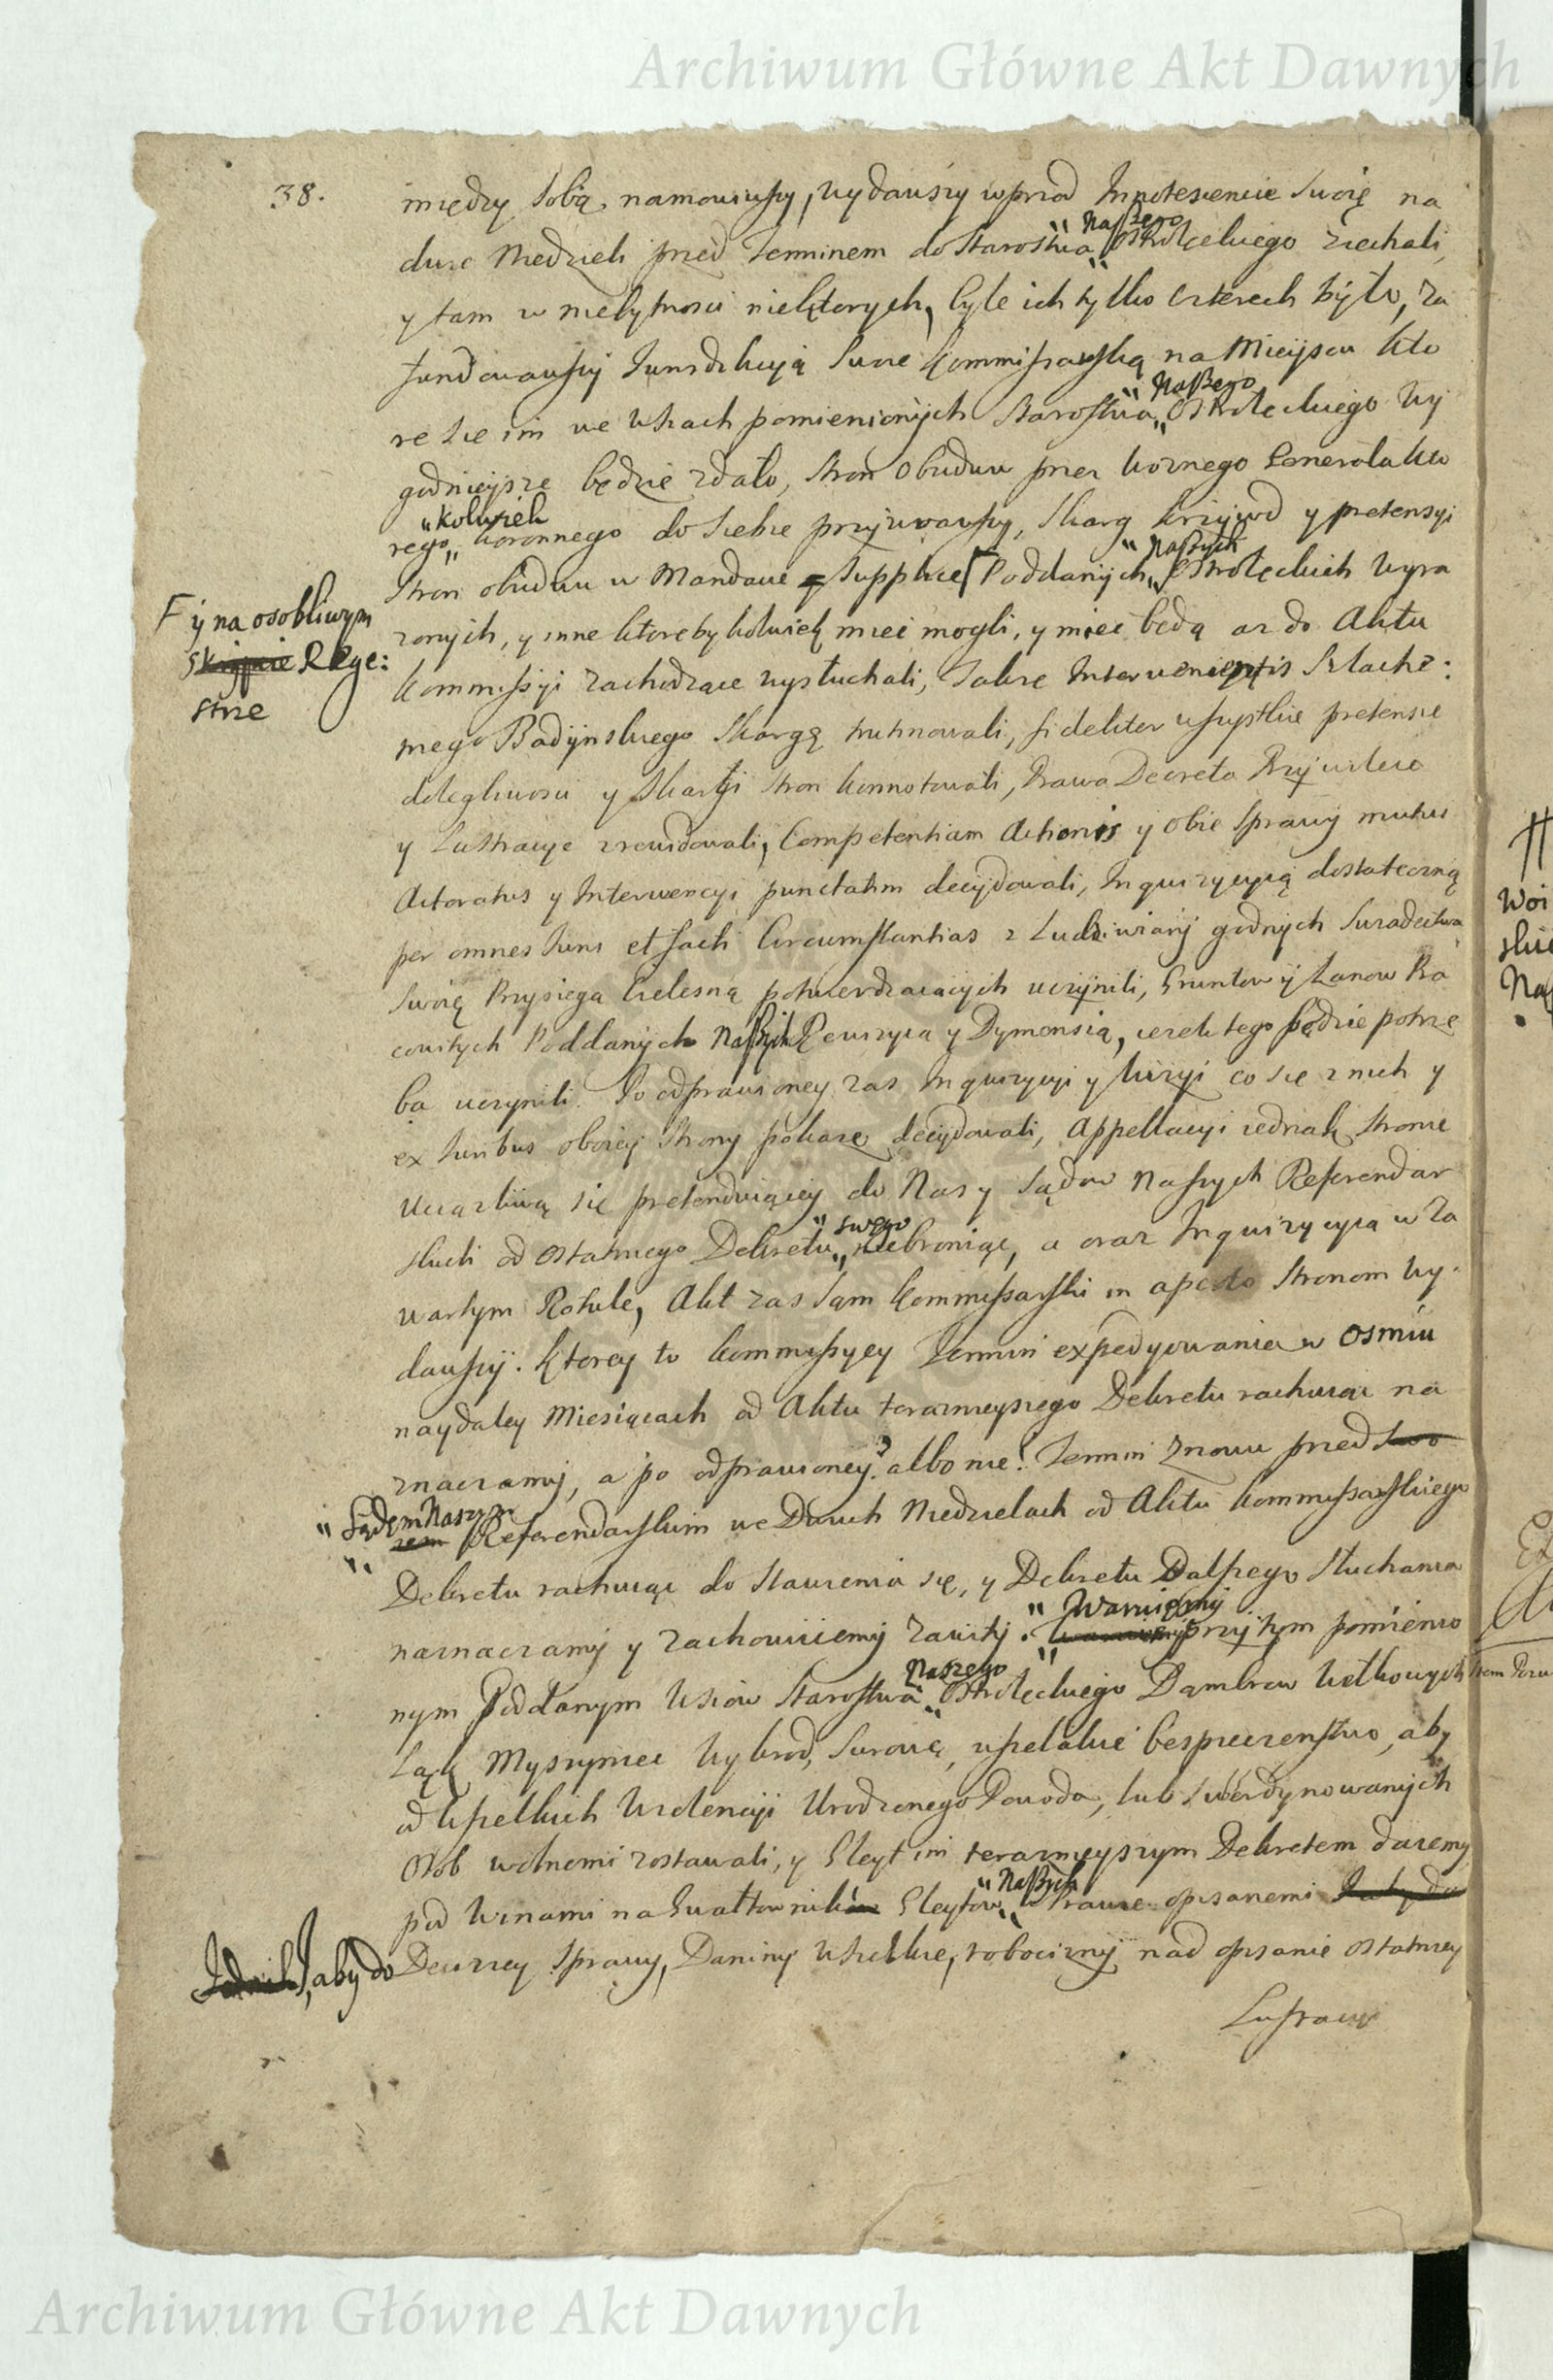 Archiwum Główne Akt Dawnych
38.
między sobą namowiwszy, wydawszy wprzod Innotescencie swoię na
dwie Niedzieli przed Terminem do Starostwa „Naszego„ Ostrołęckiego ziechali,
y tam w niebytnosci niektorych, byle ich tylko czterech było, za
fundowawszy Jurisdykcyą swoie Kommissarską na Mieyscu kto
re się im we Wsiach pomienionych Starostwa „Naszego„ Ostrołęckiego wy
godnieysze będzie zdało, stron obudwu przez Woznego Generała kto
rego „kolwiek„ koronnego do siebie przyzwawszy, skarg krzywd y pretensyi
stron obudwu w Mandacie y Supplice Poddanych „Naszych„ Ostrołęckich wyra
F y na osobliwym
skrypcie Reye:
strze
zonych, y inne ktoreby kolwiek miec mogli, y miec będą az do Aktu
Kommissyi zachodzące wysłuchali, Salve Intervenientis Szlache:
tnego Badynskiego skargę trutynowali, fideliter wszystkie pretensie
dolegliwosci y skargi stron konnotowali, Prawa Decreta Przywileia
y Lustracye zrewidowali, Competentiam Actionis y obie sprawy mutui
Actoratus y Interwencyi punctatim decydowali, Inquizycyią dostateczną
per omnes Juris et facti Circumstantias z Ludzi wiary godnych swiadectwa
swoię Przysięgą Cielesną potwierdzaiących uczynili, Gruntow y Łanow Pra
cowitych Poddanych Naszych Rewizyą y Dymensią, ieżeli tego będzie potrze
ba uczynili. Po odprawioney zas Inquizycyi y Wizyi co się z nich y
ex Juribus oboiey strony pokaze, decydowali, Appellacyi iednak stronie
uciązliwą się pretenduiącey do Nas y Sądow Naszych Referendar
skich od ostatniego Dekretu „swego„ niebroniąc, a oraz Inquizycyią w za
wartym Rotule, Akt zas sam Kommissarski in aperto stronom wy.
dawszy. Ktorey to Kommissyey Termin expedyowania w osmiu
naydaley Miesiącach od Aktu teraznieyszego Dekretu rachuiąc na
znaczamy, a po odprawioney? albo nie! Termin znowu przed
„Sądem Naszym„
Referendarskim we Dwuch Niedzielach od Aktu Kommissarskiego
Dekretu rachuiąc do stawienia się, y Dekretu Dalszego słuchania
naznaczamy y zachowuiemy zawity. „Waruiemy„ przytym pomienio
nym Poddanym Wsiow Starostwa „Naszego„ Ostrołęckiego Dąmbrow Wołkowych
Łąk Myszyniec Wykrod, Surowę, wszelakie bespieczenstwo, aby
od wszelkich Wiolencyi Urodzonego Powoda, lub subordynowanych
Osob wolnemi zostawali, y Gleyt im teraznieyszym Dekretem daiemy
pod Winami na Gwałtownikow Gleytow „Naszych„ w Prawie opisanemi
, aby do Dewzey sprawy, Daniny wszelkie, robocizny nad opisanie ostatniey
Lustracyi
Woi
Archiwum Główne Akt Dawnych